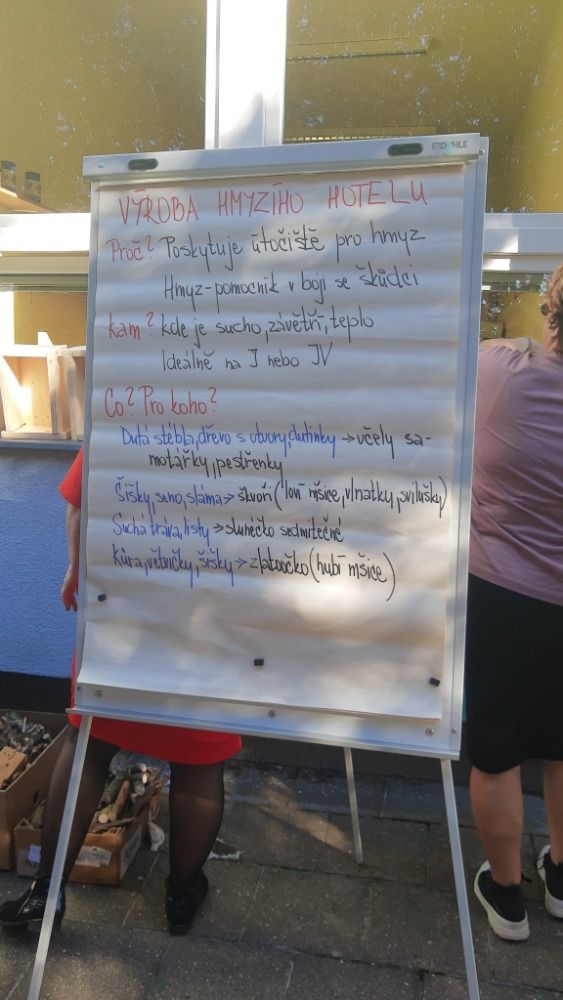 VÝROBA HMYZÍHO HOTELU
Proč? Poskytuje útočiště pro hmyz
Hmyz-pomocník v boji se škůdci
kam? kde je sucho, závětří, teplo
Ideálně na J nebo JV
Co? Pro koho?
Dutá stébla, dřevo s otvory, dutinky → včely sa-
motářky, pestřenky
Šišky, seno, sláma → škvoři (loví mšice, vlnatky, svilušky)
Suchá tráva, listy → slunéčko sedmitečné
Kůra, větvičky, šišky → zlatoočko (hubí mšice)